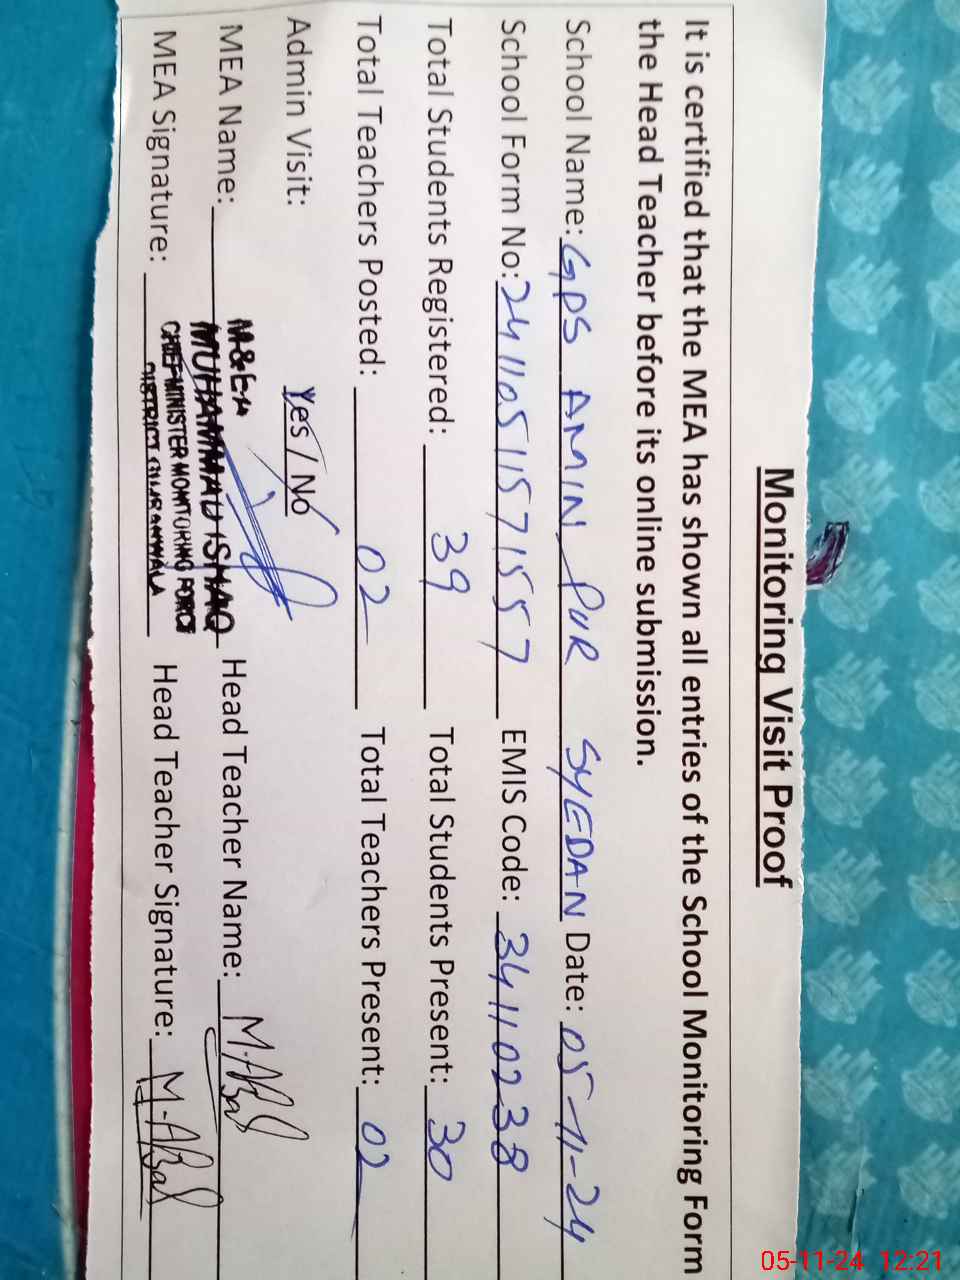 Monitoring Visit Proof
It is certified that the MEA has shown all entries of the School Monitoring Form
the Head Teacher before its online submission.
School Name: GPS AMIN PUR SYEDAN Date: 05-11-24
School Form No: 2411051157157 EMIS Code: 34110238
Total Students Registered: 39 Total Students Present: 30
Total Teachers Posted: 02 Total Teachers Present: 02
Admin Visit: Yes / No
MEA Name: MUHAMMAD ISHAQ Head Teacher Name: M.
CHIEF MINISTER MONITORING FORCE
MEA Signature: DISTRICT Head Teacher Signature: M.
05-11-24 12:21